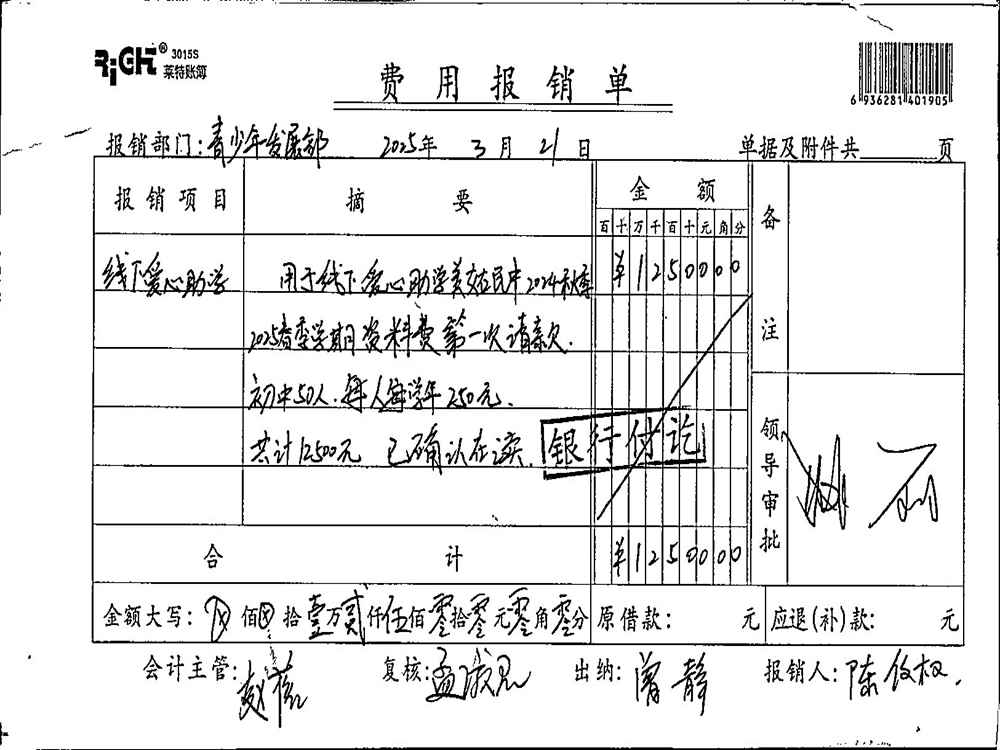 RiGHT® 3015S
莱特账簿
费用报销单
6 936281 401905
报销部门:青少年发展部 2025年 3月 21日 单据及附件共 页
报销项目 摘要 金额 备注
百十万千百十元角分
线下爱心助学 用于线下爱心助学美姑民中2024秋季 ¥1250000
2025春季学期资料费第一次请款.
初中50人.每人每学年250元.
共计12500元 已确认在读.
银行付讫
领导审批
合计 ¥1250000
金额大写: ⊗佰⊗拾壹万贰仟伍佰零拾零元零角零分 原借款: 元 应退(补)款: 元
会计主管: 复核:孟淑思 出纳:曾静 报销人:陈